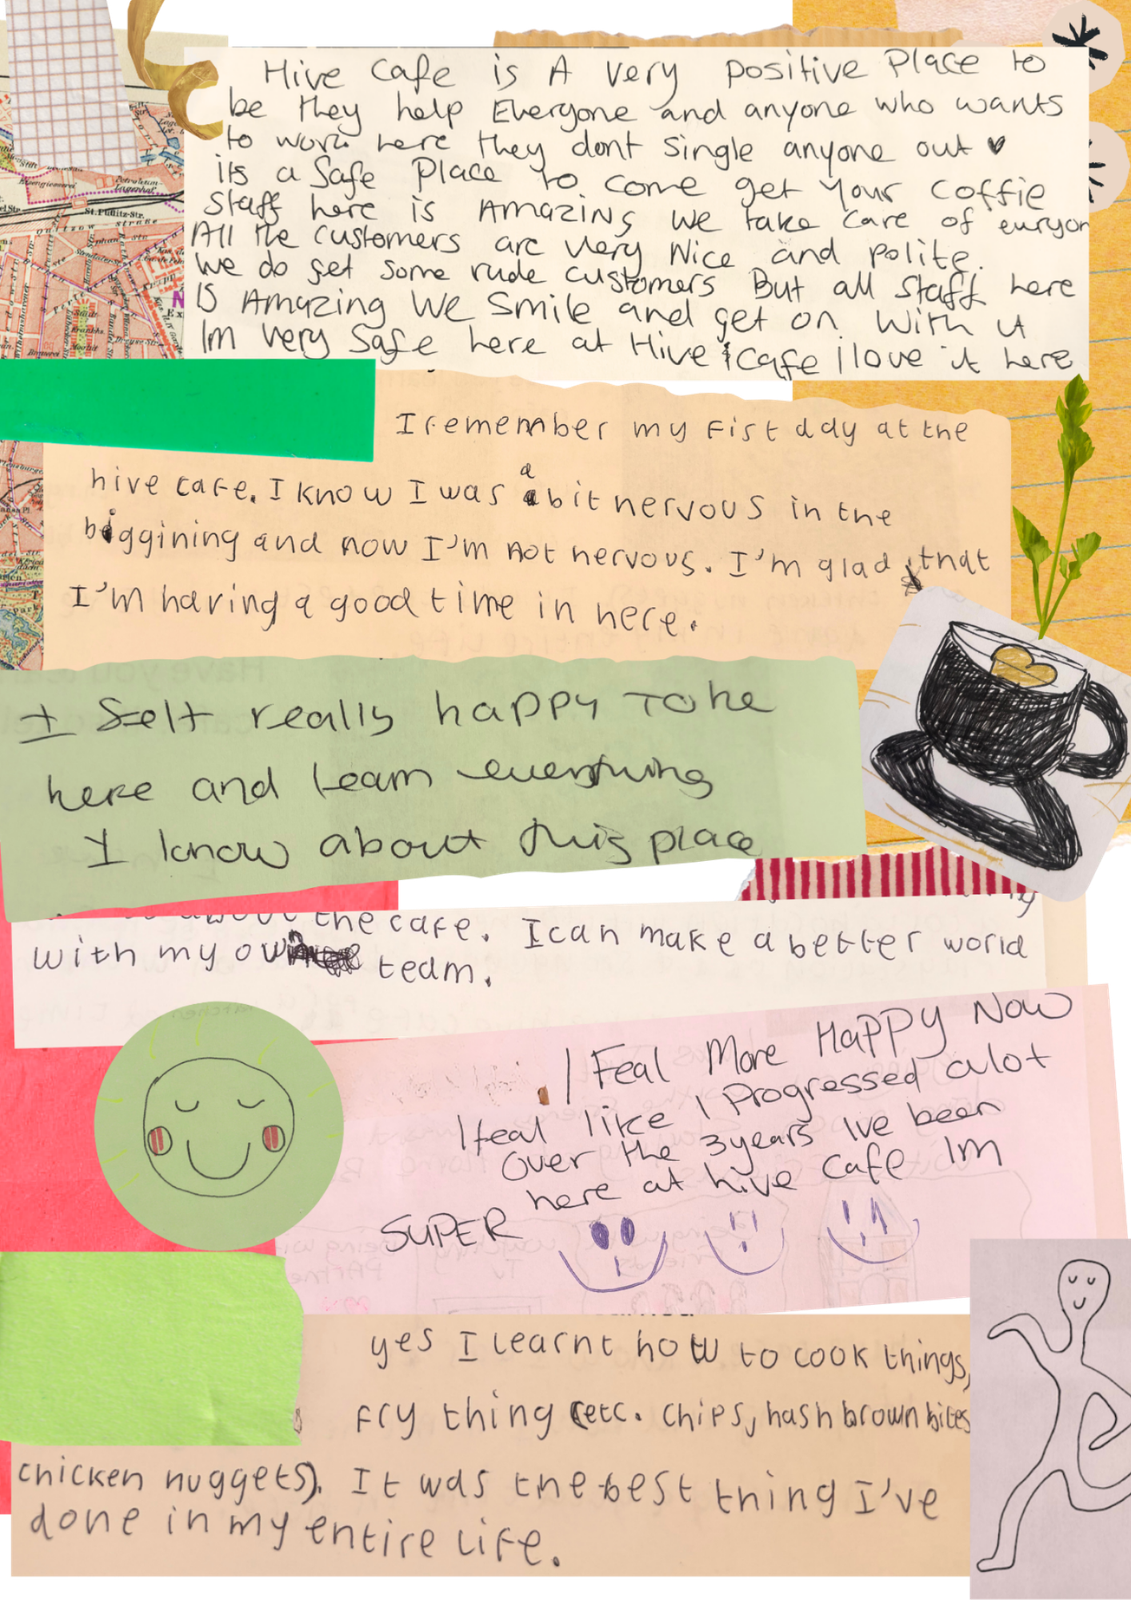 Hive Cafe is A very positive Place to
be they help Everyone and anyone who wants
to work here they dont single anyone out ♥
its a Safe Place to come get your coffie
Staff here is AMAZING we take care of euryon
All the customers are very Nice and polite.
We do get some rude customers But all staff here
is AMAZING We Smile and get on with it
Im very Safe here at Hive Cafe i love it here
I remember my fist day at the
hive cafe. I know I was a bit nervous in the
biggining and now I'm not nervous. I'm glad that
I'm having a good time in here.
I felt really happy To he
here and learn everything
I know about this place
about the cafe. I can make a better world
with my own team.
I Feal More HAPPY Now
I feal like I Progressed alot
over the 3 years Ive been
here at hive cafe Im
SUPER
yes I learnt how to cook things,
fry thing (etc. chips, hash brown bites
chicken nuggets). It was the best thing I've
done in my entire life.